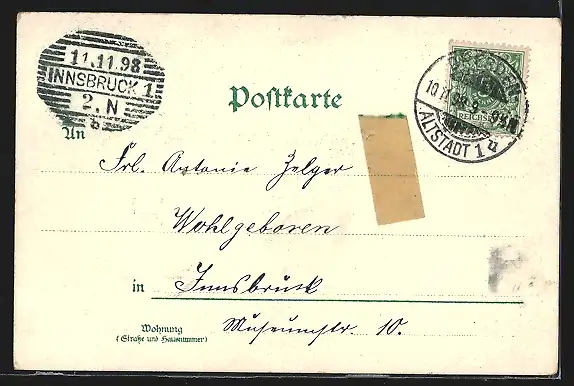 11.11.98
INNSBRUCK 1
2. N
b
DRESDEN
10.11.98
ALTSTADT 1 u
REICHSPOST
Postkarte
An
Frl. Antonie Zelger
Wohlgeboren
in Innsbruck
Museumstr. 10.
Wohnung
(Straße und Hausnummer)